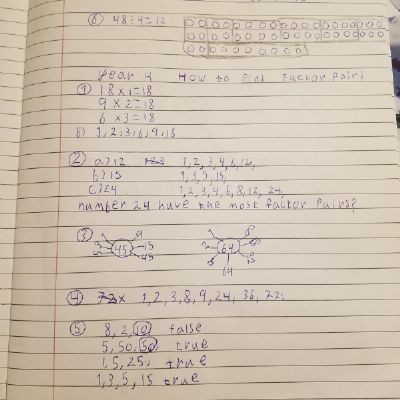 ⑥ 48÷4=12
Year 4 How to find Factor Pairs
① 18x1=18
9 x 2=18
6 x 3=18
B) 1,2,3,6,9,18
② a) 12 1,2,3,4,6,12,
b) 15 1,3,5,15,
c) 24 1,2,3,4,6,8,12, 24,
number 24 have the most factor Pairs?
③ 45 9 15 45
64 64
④ 1,2,3,8,9,24, 36, 72,
⑤ 8, 2, 10 false
5, 50, 50, true
1,5,25, true
1,3,5, 15 true